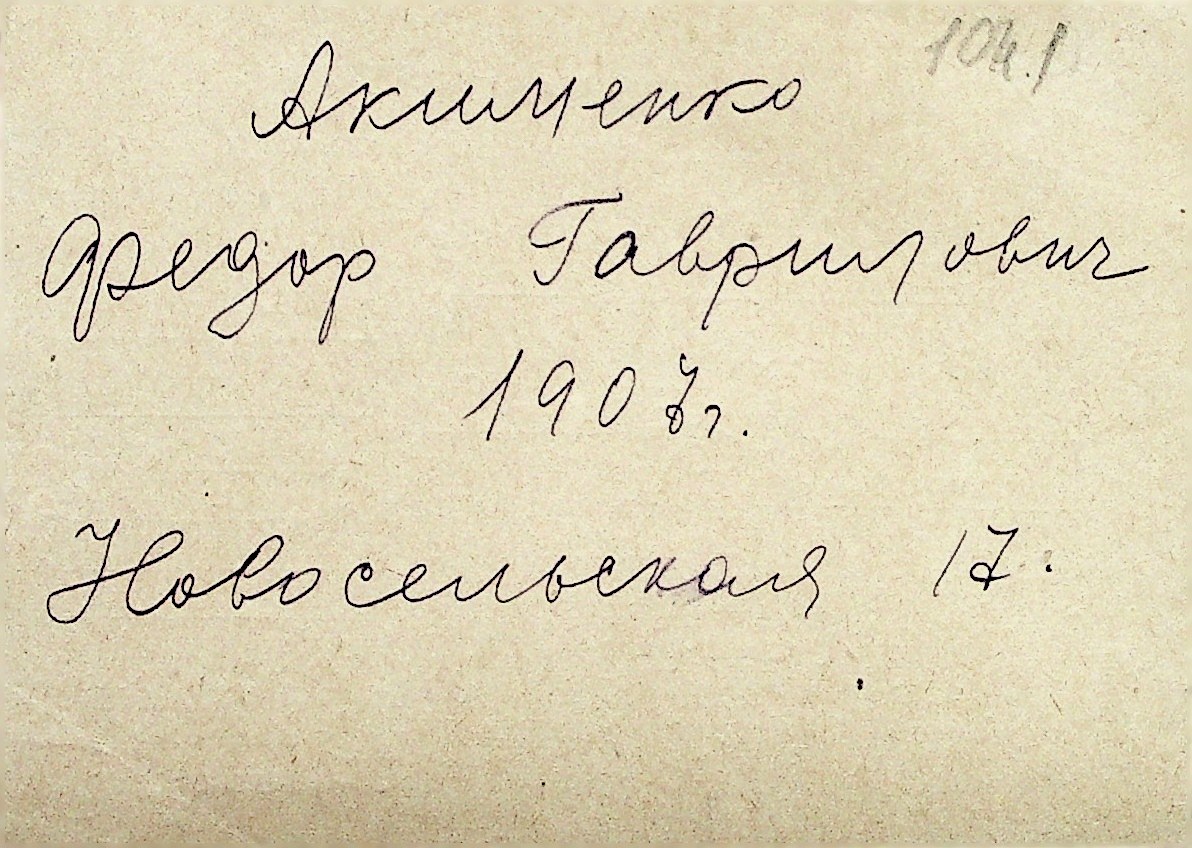 104.1
Акименко
Федор Гаврилович
1907г.
Новосельская 17.